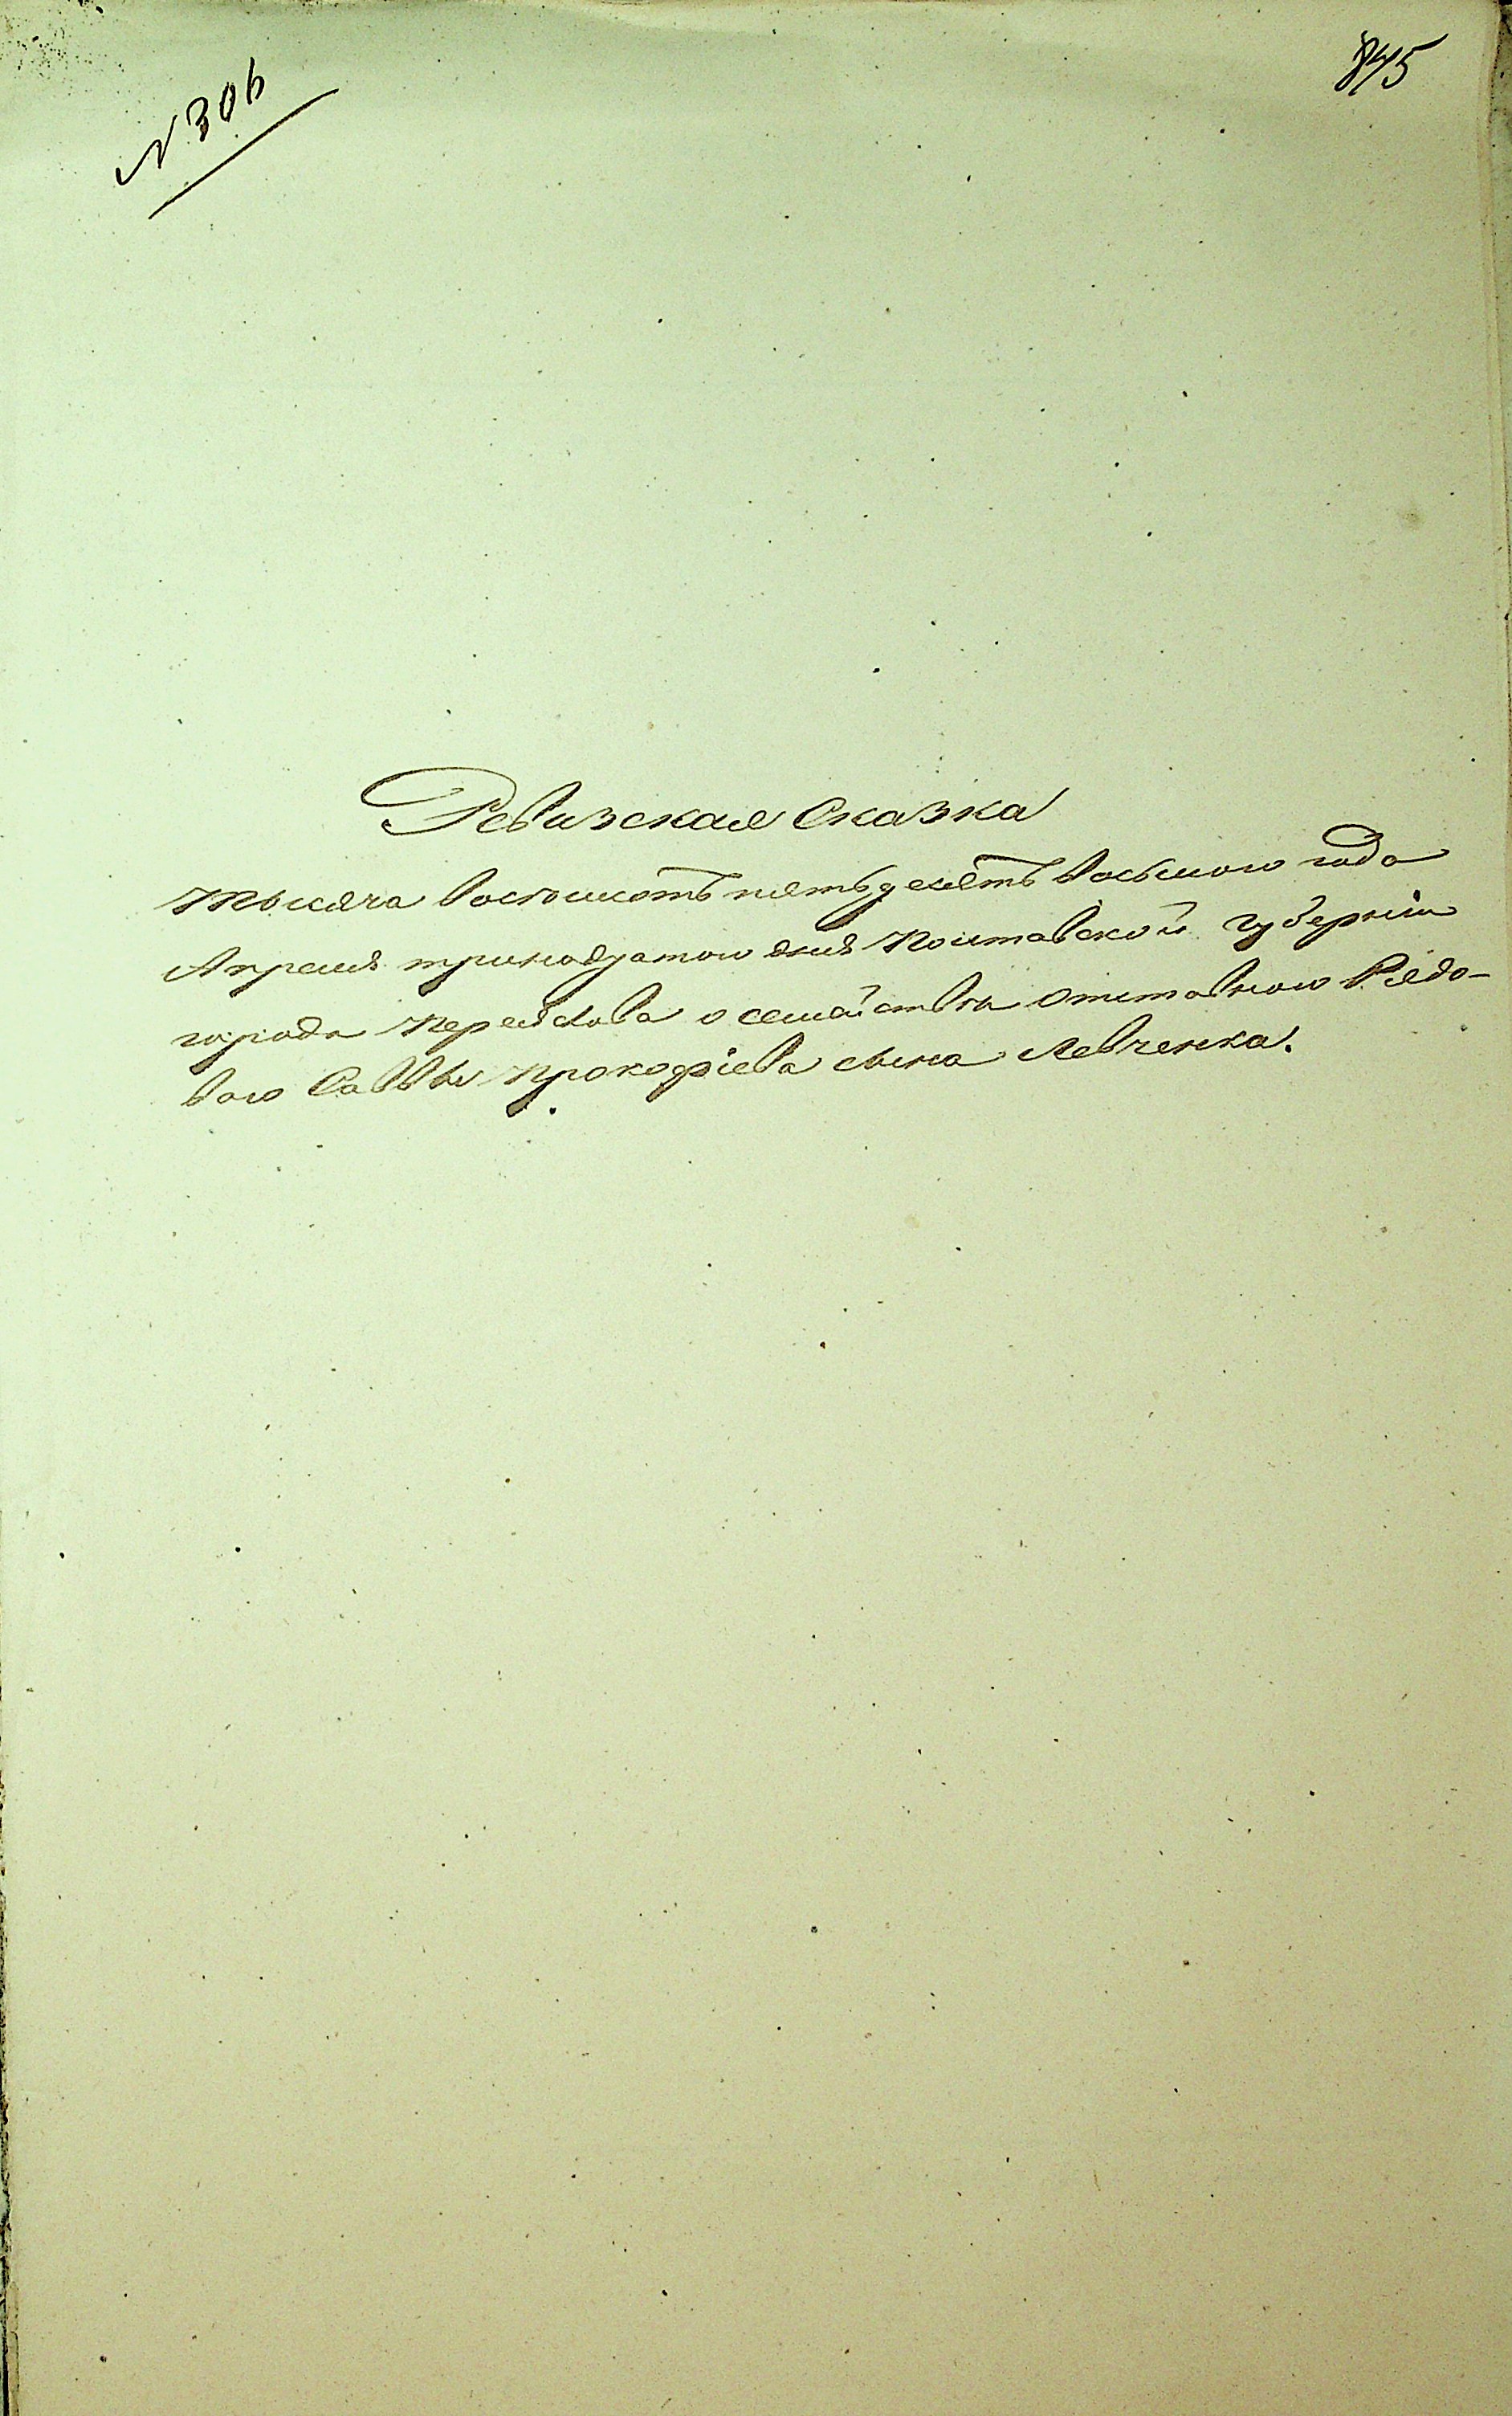 N 306
845
Ревизская Сказка
Тысяча восемьсотъ пятьдесятъ восьмого года
Апреля тринадцатого дня Полтавской Губернiи
города Переяслова о семействѣ отставного Рядо-
вого Саввы Прокофiева сына Левченка.